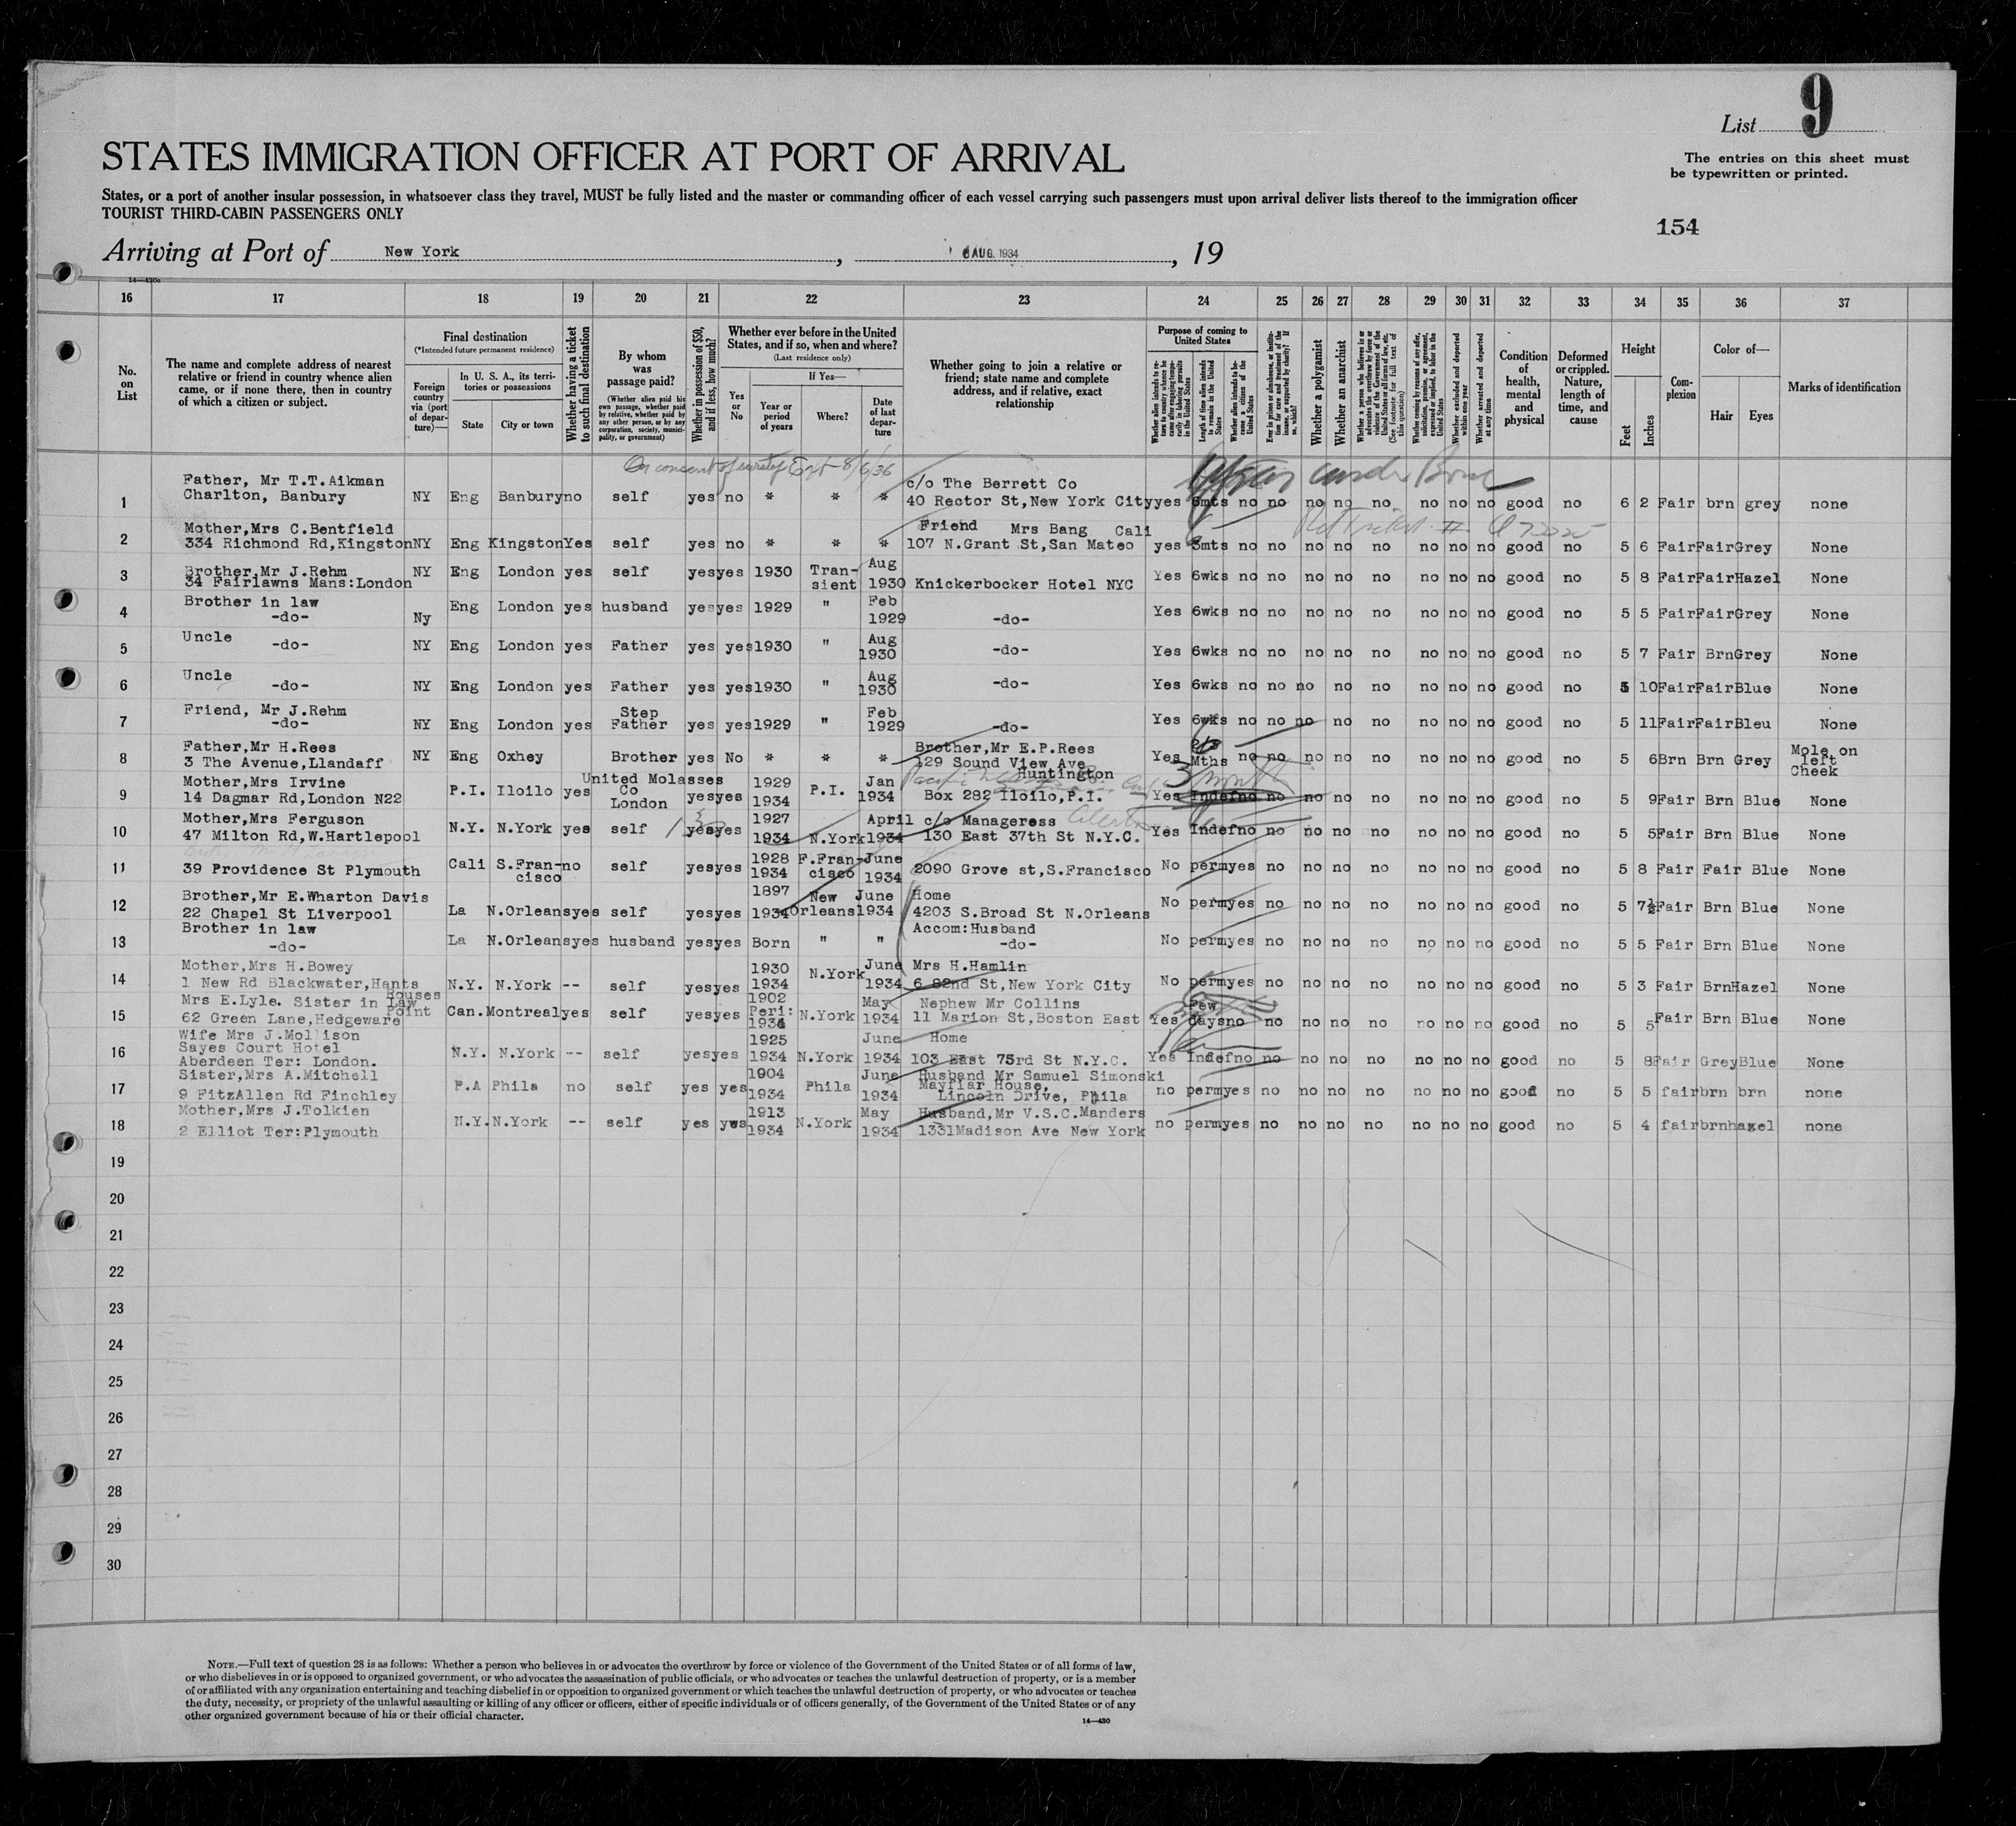 List 9
The entries on this sheet must
be typewritten or printed.
STATES IMMIGRATION OFFICER AT PORT OF ARRIVAL
States, or a port of another insular possession, in whatsoever class they travel, MUST be fully listed and the master or commanding officer of each vessel carrying such passengers must upon arrival deliver lists thereof to the immigration officer
TOURIST THIRD-CABIN PASSENGERS ONLY
154
Arriving at Port of New York, 6 AUG. 1934, 19
16 17 18 19 20 21 22 23 24 25 26 27 28 29 30 31 32 33 34 35 36 37
No. on List
The name and complete address of nearest relative or friend in country whence alien came, or if none there, then in country of which a citizen or subject.
Final destination
(*Intended future permanent residence)
Foreign country via (port of departure)—
In U. S. A., its territories or possessions
State
City or town
Whether having a ticket to such final destination
By whom was passage paid?
(Whether alien paid his own passage, whether paid by relative, whether paid by any other person, or by any corporation, society, municipality, or government)
Whether in possession of $50, and if less, how much?
Whether ever before in the United States, and if so, when and where?
(Last residence only)
Yes or No
If Yes—
Year or period of years
Where?
Date of last departure
Whether going to join a relative or friend; state name and complete address, and if relative, exact relationship
Purpose of coming to United States
Length of time alien intends to remain in the United States
Whether alien intends to become a citizen of the United States
Whether a polygamist
Whether an anarchist
Whether excluded and deported within one year
Whether arrested and deported at any time
Condition of health, mental and physical
Deformed or crippled. Nature, length of time, and cause
Height
Feet
Inches
Complexion
Color of—
Hair
Eyes
Marks of identification
On consent of surety Ext - 8/6/36
1 Father, Mr T.T.Aikman
Charlton, Banbury NY Eng Banbury no self yes no * * * c/o The Berrett Co
40 Rector St,New York City yes 6mts no no no no no no no no good no 6 2 Fair brn grey none
2 Mother,Mrs C.Bentfield
334 Richmond Rd,Kingston NY Eng Kingston Yes self yes no * * * Friend Mrs Bang Cali
107 N.Grant St,San Mateo yes 3mts no no no no no no no no good no 5 6 Fair Fair Grey None
3 Brother,Mr J.Rehm
34 Fairlawns Mans:London NY Eng London yes self yes yes 1930 Transient Aug 1930 Knickerbocker Hotel NYC Yes 6wks no no no no no no no no good no 5 8 Fair Fair Hazel None
4 Brother in law
-do- Ny Eng London yes husband yes yes 1929 " Feb 1929 -do- Yes 6wks no no no no no no no no good no 5 5 Fair Fair Grey None
5 Uncle
-do- NY Eng London yes Father yes yes 1930 " Aug 1930 -do- Yes 6wks no no no no no no no no good no 5 7 Fair Brn Grey None
6 Uncle
-do- NY Eng London yes Father yes yes 1930 " Aug 1930 -do- Yes 6wks no no no no no no no no good no 5 10 Fair Fair Blue None
7 Friend, Mr J.Rehm
-do- NY Eng London yes Step Father yes yes 1929 " Feb 1929 -do- Yes 6wks no no no no no no no no good no 5 11 Fair Fair Bleu None
8 Father,Mr H.Rees
3 The Avenue,Llandaff NY Eng Oxhey Brother yes No * * * Brother,Mr E.P.Rees
129 Sound View Ave
Huntington Yes Mths no no no no no no no no good no 5 6 Brn Brn Grey Mole on left Cheek
9 Mother,Mrs Irvine
14 Dagmar Rd,London N22 P.I. Iloilo yes United Molasses Co London yes yes 1929 1934 P.I. Jan 1934 Box 282 Iloilo,P.I. Yes Indef no no no no no no no no good no 5 9 Fair Brn Blue None
3 month
10 Mother,Mrs Ferguson
47 Milton Rd,W.Hartlepool N.Y. N.York yes self yes yes 1927 1934 N.York April 1934 c/o Manageress
130 East 37th St N.Y.C. Yes Indef no no no no no no no no good no 5 5 Fair Brn Blue None
11 39 Providence St Plymouth Cali S.Francisco no self yes yes 1928 1934 F.Francisco June 1934 2090 Grove st,S.Francisco No perm yes no no no no no no no good no 5 8 Fair Fair Blue None
12 Brother,Mr E.Wharton Davis
22 Chapel St Liverpool La N.Orleans yes self yes yes 1897 1934 New Orleans June 1934 Home
4203 S.Broad St N.Orleans No perm yes no no no no no no no good no 5 7½ Fair Brn Blue None
13 Brother in law
-do- La N.Orleans yes husband yes yes Born " " Accom:Husband
-do- No perm yes no no no no no no no good no 5 5 Fair Brn Blue None
14 Mother,Mrs H.Bowey
1 New Rd Blackwater,Hants N.Y. N.York -- self yes yes 1930 1934 N.York June 1934 Mrs H.Hamlin
6 82nd St,New York City No perm yes no no no no no no no good no 5 3 Fair Brn Hazel None
15 Mrs E.Lyle. Sister in Law
62 Green Lane,Hedgeware Rouses Point Can. Montreal yes self yes yes 1902 Peri: 1934 N.York May 1934 Nephew Mr Collins
11 Marion St,Boston East Yes Few days no no no no no no no no good no 5 5 Fair Brn Blue None
16 Wife Mrs J.Mollison
Sayes Court Hotel
Aberdeen Ter: London. N.Y. N.York -- self yes yes 1925 1934 N.York June 1934 Home
103 East 75rd St N.Y.C. Yes Indef no no no no no no no no good no 5 8 Fair Grey Blue None
17 Sister,Mrs A.Mitchell
9 FitzAllen Rd Finchley P.A Phila no self yes yes 1904 1934 Phila June 1934 Husband Mr Samuel Simonski
Mayfiar House,
Lincoln Drive, Phila no perm yes no no no no no no no good no 5 5 fair brn brn none
18 Mother,Mrs J.Tolkien
2 Elliot Ter:Plymouth N.Y. N.York -- self yes yws 1913 1934 N.York May 1934 Husband,Mr V.S.C.Manders
1331Madison Ave New York no perm yes no no no no no no no good no 5 4 fair brn hazel none
19
20
21
22
23
24
25
26
27
28
29
30
NOTE.—Full text of question 28 is as follows: Whether a person who believes in or advocates the overthrow by force or violence of the Government of the United States or of all forms of law,
or who disbelieves in or is opposed to organized government, or who advocates the assassination of public officials, or who advocates or teaches the unlawful destruction of property, or is a member
of or affiliated with any organization entertaining and teaching disbelief in or opposition to organized government or which teaches the unlawful destruction of property, or who advocates or teaches
the duty, necessity, or propriety of the unlawful assaulting or killing of any officer or officers, either of specific individuals or of officers generally, of the Government of the United States or of any
other organized government because of his or their official character.
14—430